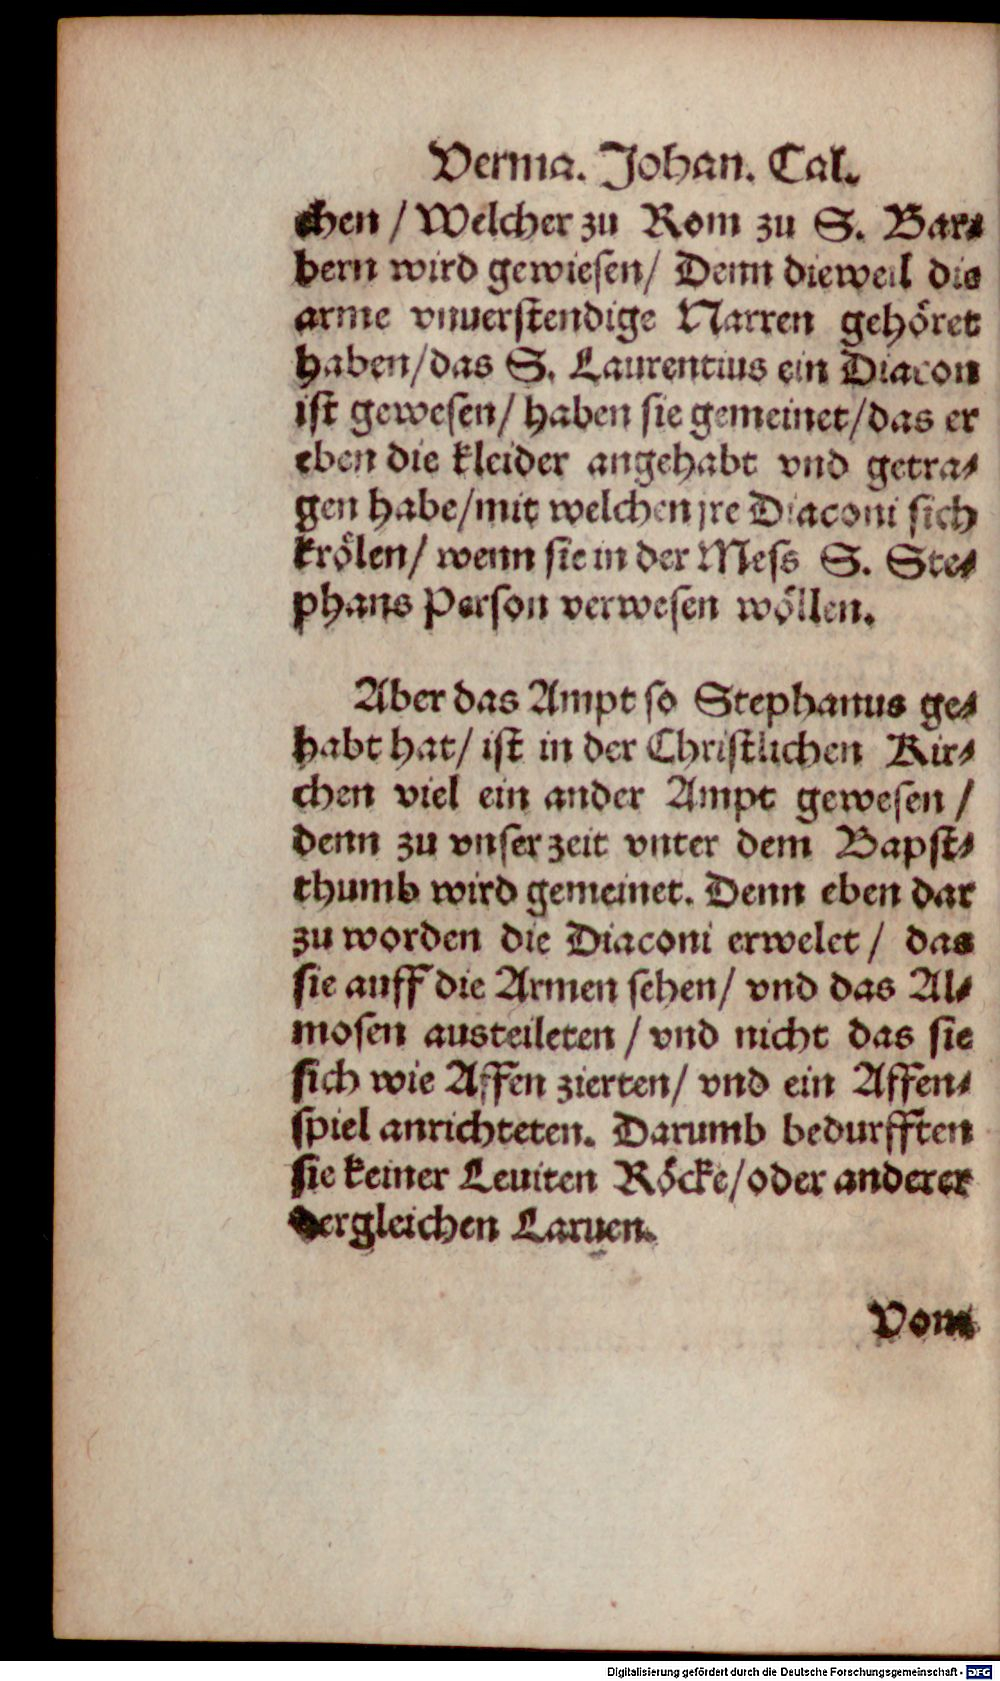 Verma. Johan. Cal.
chen / Welcher zu Rom zu S. Bar⸗
bern wird gewiesen/ Denn dieweil die
arme vnuerstendige Narren gehöret
haben/das S. Laurentius ein Diacon
ist gewesen/ haben sie gemeinet/das er
eben die kleider angehabt vnd getra⸗
gen habe/mit welchen jre Diaconi sich
krölen/ wenn sie in der Mess S. Ste⸗
phans Person verwesen wöllen.
Aber das Ampt so Stephanus ge⸗
habt hat/ ist in der Christlichen Kir⸗
chen viel ein ander Ampt gewesen /
denn zu vnser zeit vnter dem Bapst⸗
thumb wird gemeinet. Denn eben dar
zu worden die Diaconi erwelet / das
sie auff die Armen sehen/ vnd das Al⸗
mosen austeileten / vnd nicht das sie
sich wie Affen zierten/ vnd ein Affen⸗
spiel anrichteten. Darumb bedurfften
sie keiner Leuiten Röcke/oder anderer
dergleichen Laruen.
Vom
Digitalisierung gefördert durch die Deutsche Forschungsgemeinschaft - DFG